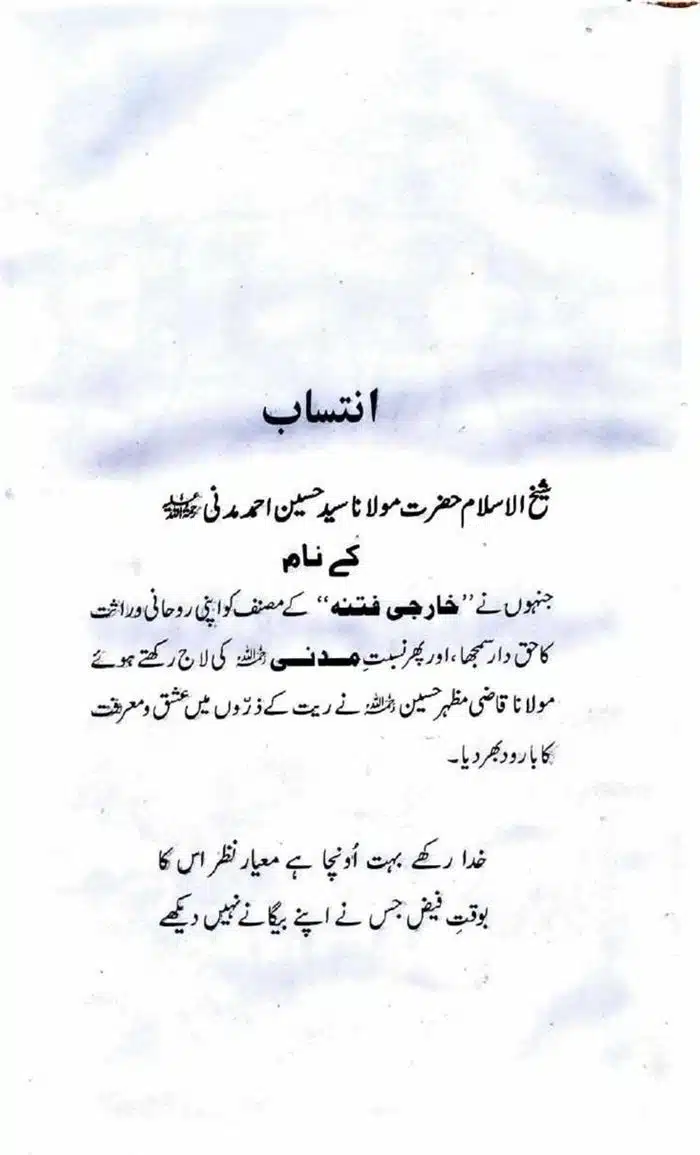 انتساب
شیخ الاسلام حضرت مولانا سید حسین احمد مدنی رحمۃ اللہ علیہ
کے نام
جنہوں نے ”خارجی فتنہ“ کے مصنف کو اپنی روحانی وراثت
کا حق دار سمجھا، اور پھر نسبتِ مدنی رحمہ اللہ کی لاج رکھتے ہوئے
مولانا قاضی مظہر حسین رحمہ اللہ نے ریت کے ذرّوں میں عشق و معرفت
کا بارود بھر دیا۔
خدا رکھے بہت اُونچا ہے معیار نظر اس کا
بوقتِ فیض جس نے اپنے بیگانے نہیں دیکھے